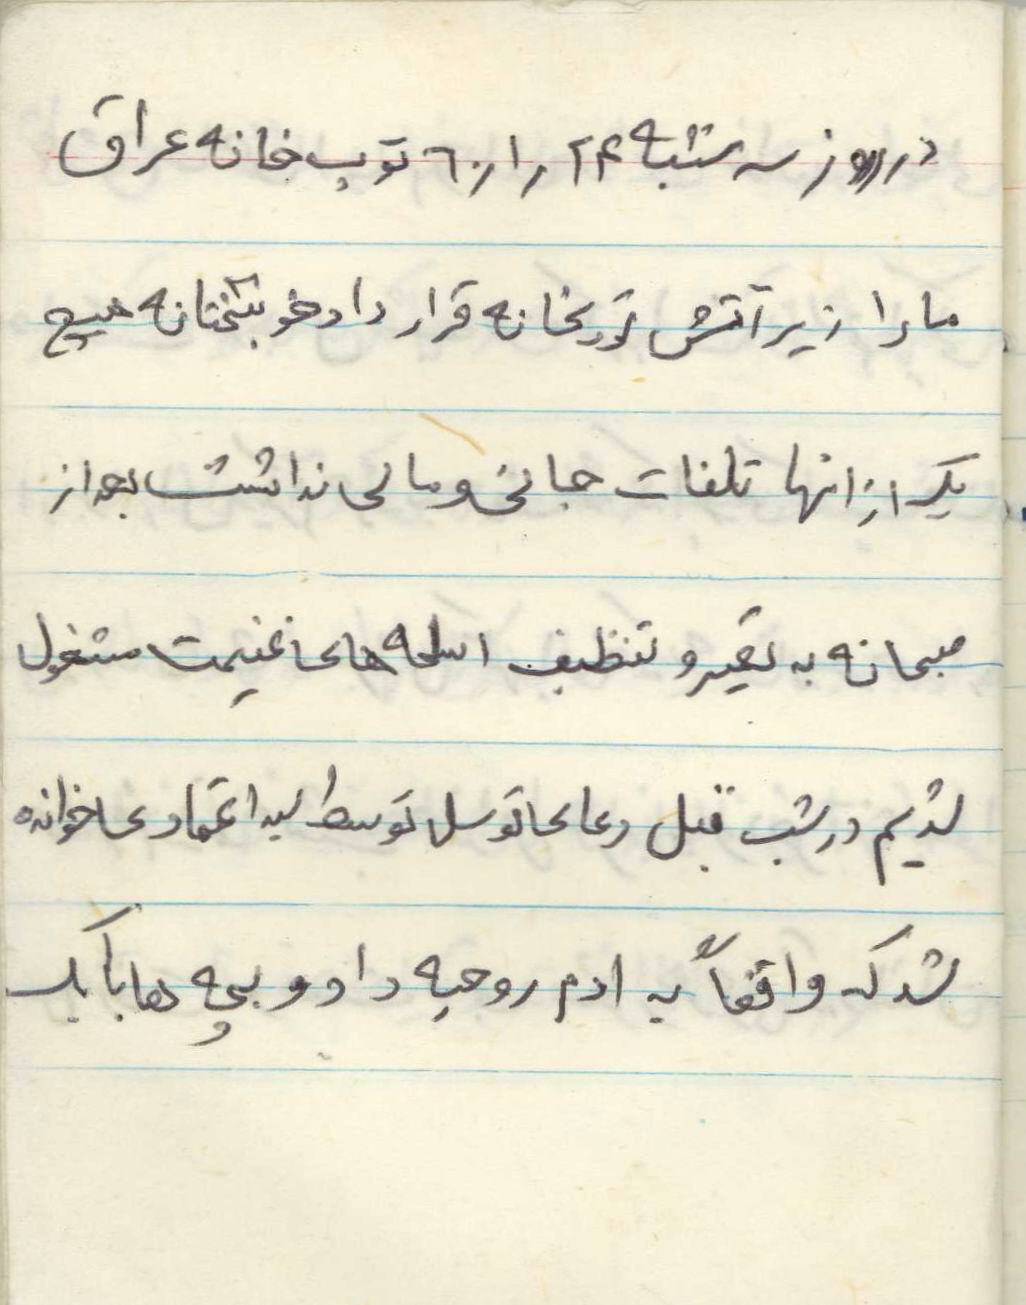 در روز سه شنبه ۲۴ ر۱ ر۶۰ توپ خانه عراق
ما را زیر آتش توپخانه قرار داد خوشبختانه هیچ
یک از انها تلفات جانی و مالی نداشت بعد از
صبحانه به تعمیر و تنظیف اسلحه های غنیمت مشغول
شدیم در شب قبل دعای توسل توسط اعتمادی خوانده
شد که واقعاً به ادم روحیه داد و بچه ها با یک